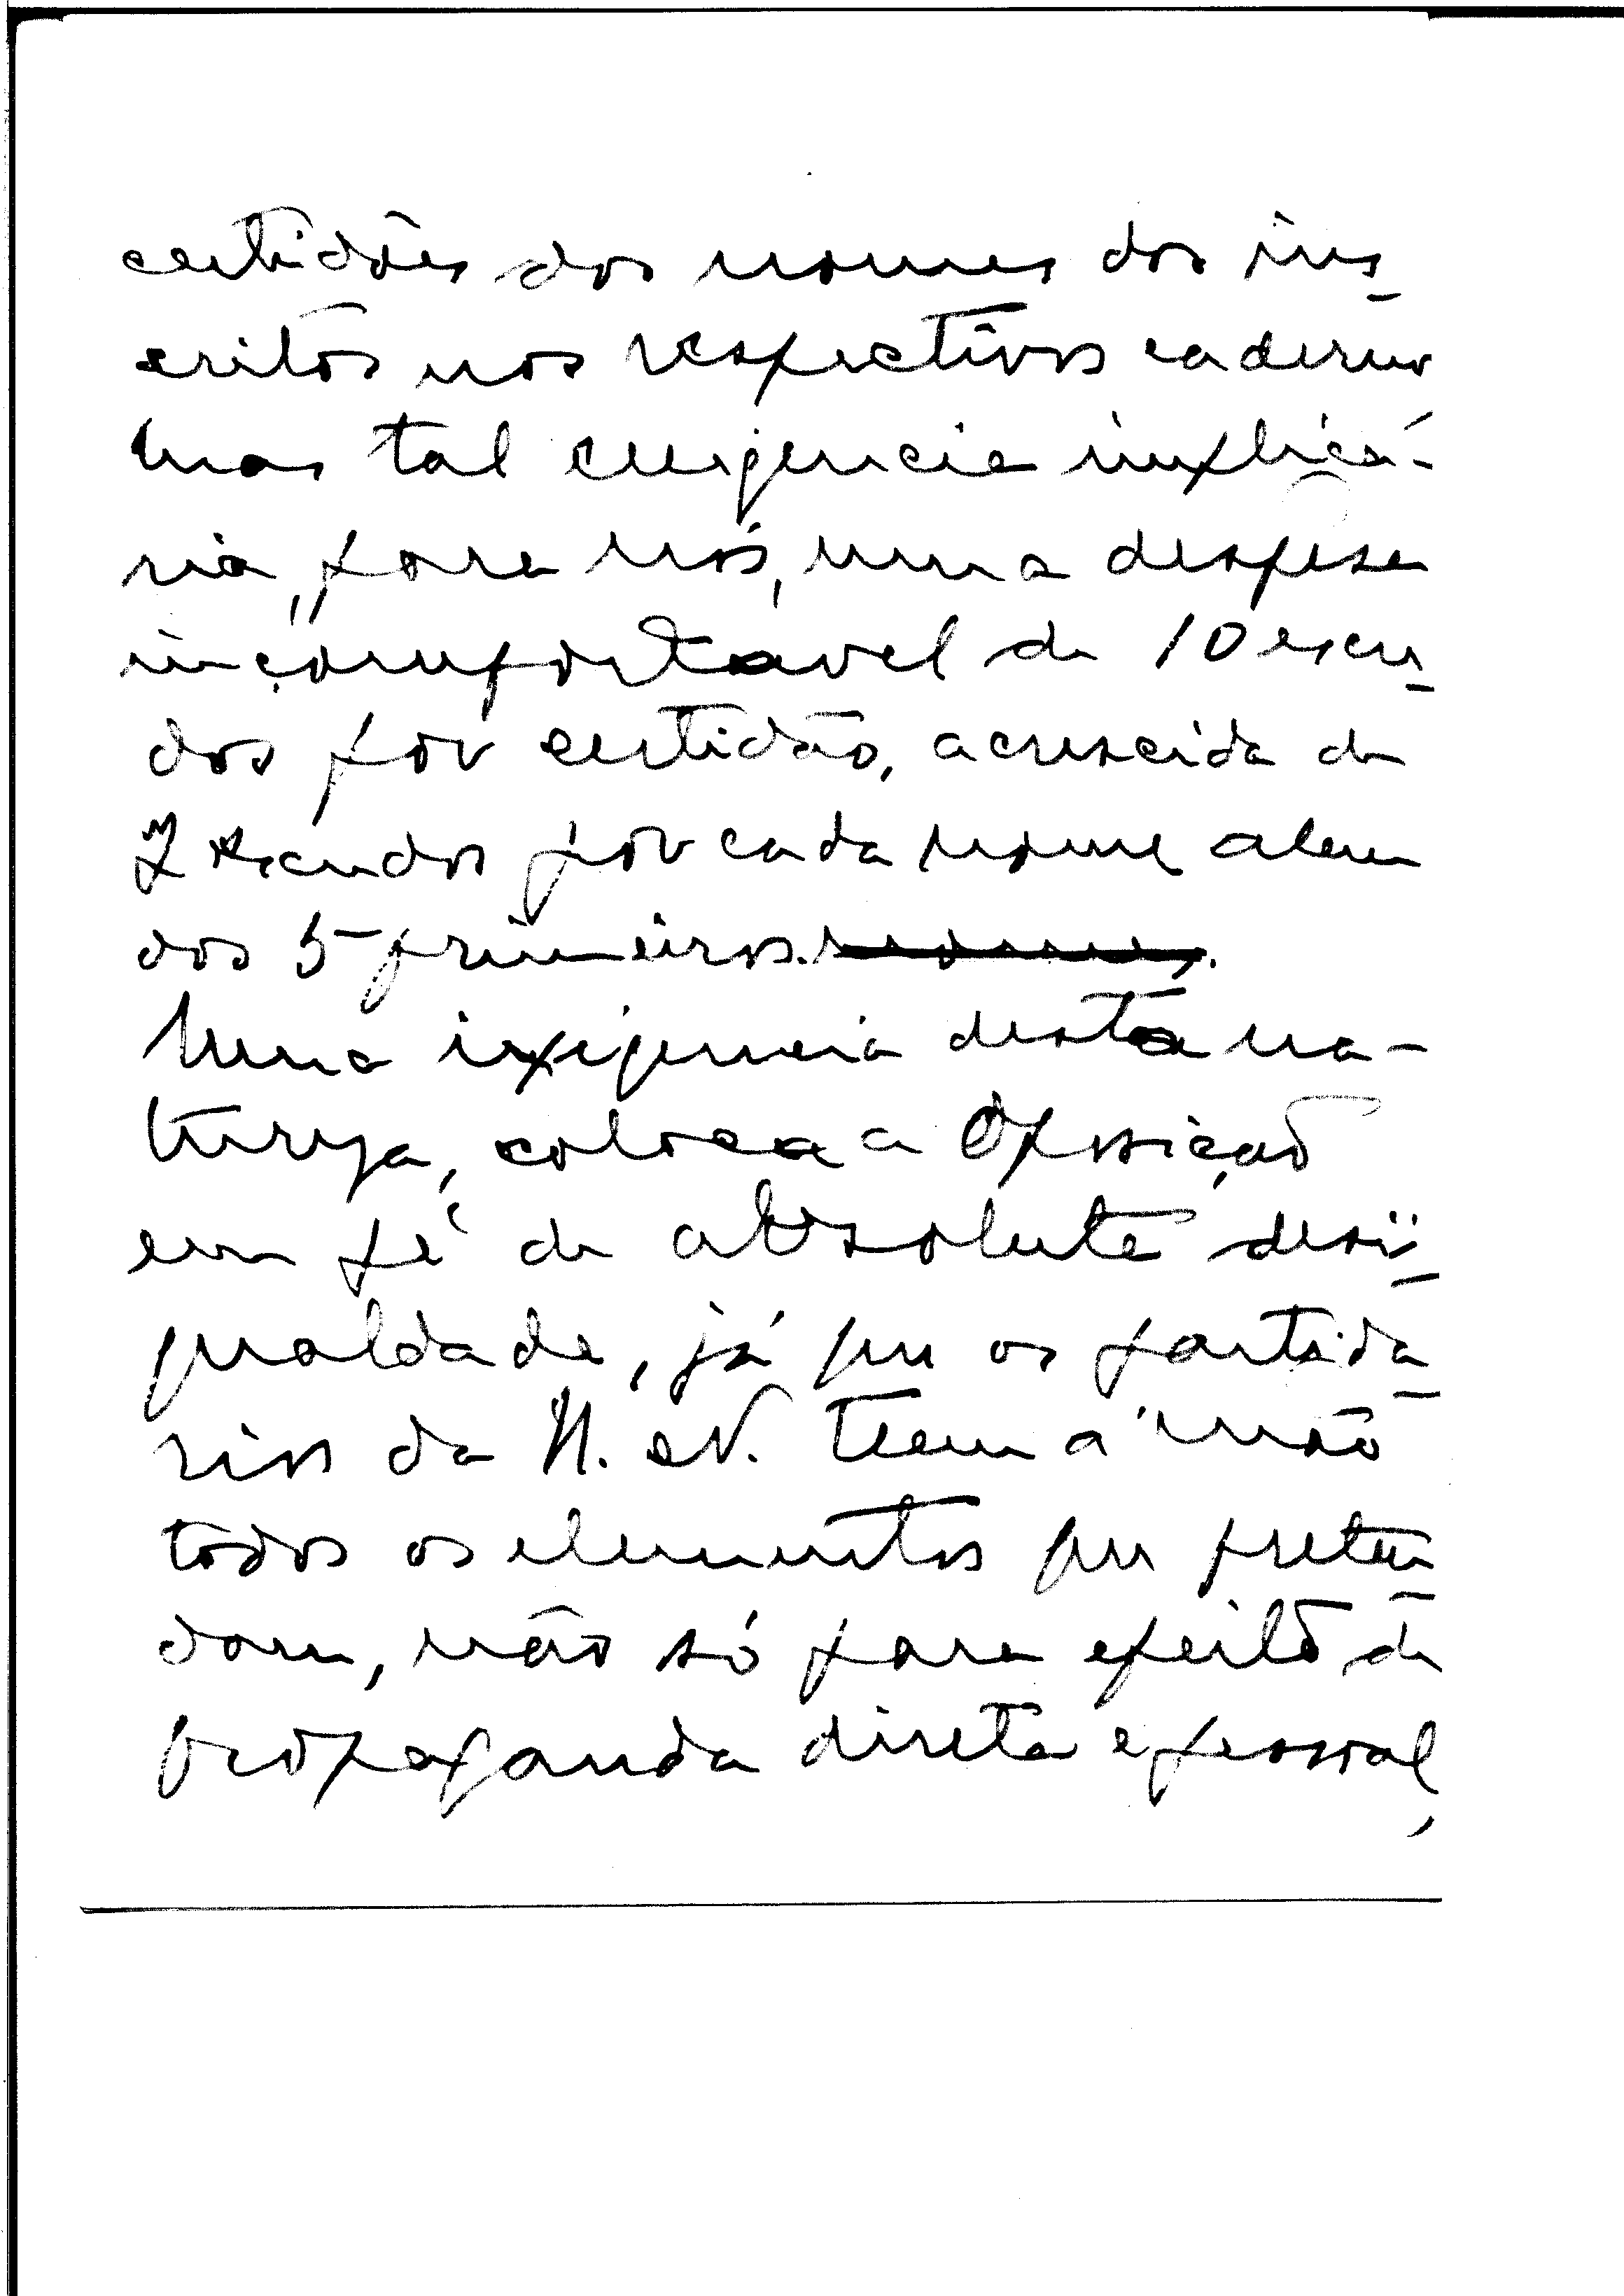 certidões dos nomes dos ins
critos nos respectivos caderno
mas tal exigencia implica-
ria, para nós, uma despesa
incomportavel de 10 escu
dos por certidão, acrescida de
2 escudos por cada nome alem
dos 5 primeiros.
Uma exigencia desta na-
tureza, coloca a Oposição
em pé de absoluta desi
gualdade, já que os partida
rios da U. N. teem á mão
todos os elementos que preten
dam, não só para efeito de
propaganda direta e pessoal,